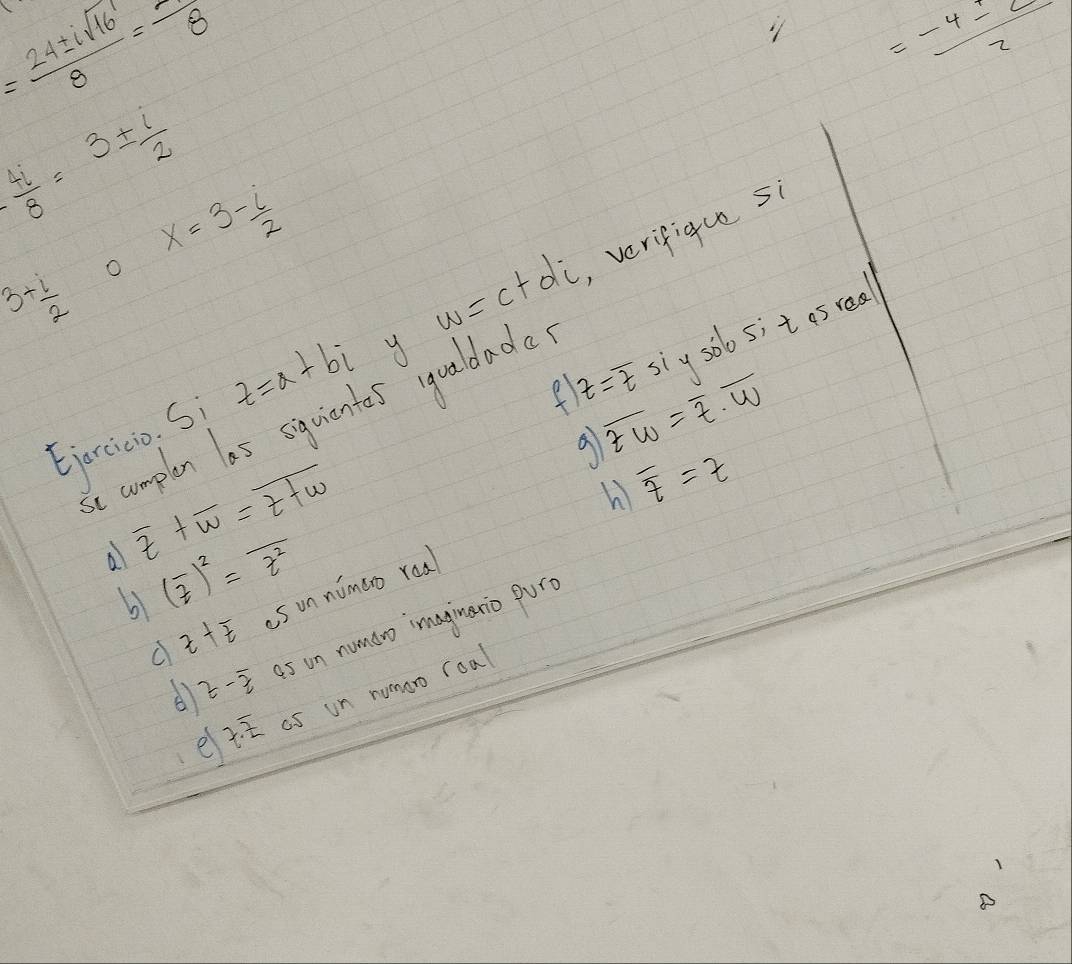 = 24±i√16 / 8 = 8
4i/8 = 3 ± i/2
3+i/2 o x = 3 - i/2
= -4 ± / 2
Ejercicio. Si z=a+bi y w=c+di, verifique si
se cumplen las siguientes igualdades
a) z̅ + w̅ = \overline{z+w}
b) (z̅)² = \overline{z²}
c) z+z̅ es un número real
d) z-z̅ es un numero imaginario puro
e) z·z̅ es un numero real
f) z=z̅ si y sólo si z es real
g) \overline{zw} = z̅·w̅
h) \overline{z̅} = z